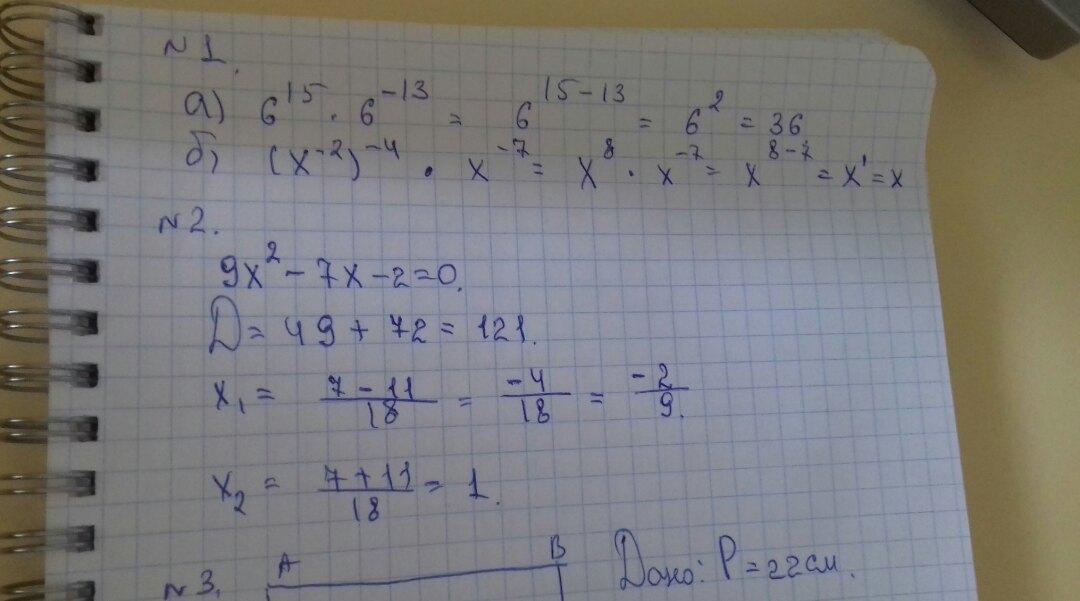 №1.
а) 6¹⁵ · 6⁻¹³ = 6¹⁵⁻¹³ = 6² = 36
б) (x⁻²)⁻⁴ · x⁻⁷ = x⁸ · x⁻⁷ = x⁸⁻⁷ = x¹ = x
№2.
9x² - 7x - 2 = 0.
D = 49 + 72 = 121.
x₁ = (7 - 11)/18 = -4/18 = -2/9.
x₂ = (7 + 11)/18 = 1.
№3. A B Дано: P = 22 см.